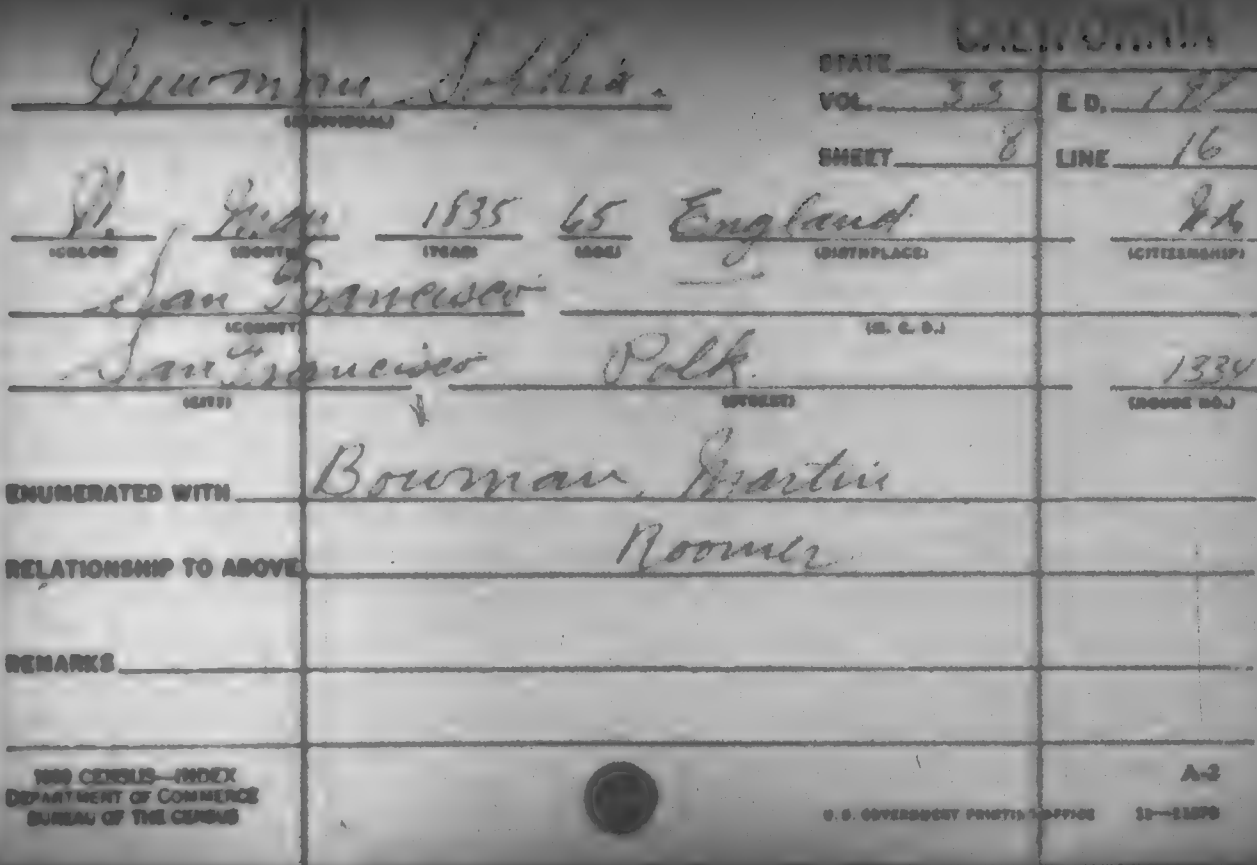 CALIFORNIA
STATE
VOL. 33 E. D. 19
(INDIVIDUAL)
SHEET 8 LINE 16
W. 1835 65 England
(COLOR) (MONTH) (YEAR) (AGE) (BIRTHPLACE) (CITIZENSHIP)
San Francisco
(COUNTY) (M. C. D.)
San Francisco Polk 1334
(CITY) (STREET) (HOUSE NO.)
ENUMERATED WITH Bowman, Martin
RELATIONSHIP TO ABOVE Roomer
REMARKS
1900 CENSUS—INDEX A-2
DEPARTMENT OF COMMERCE
BUREAU OF THE CENSUS U. S. GOVERNMENT PRINTING OFFICE